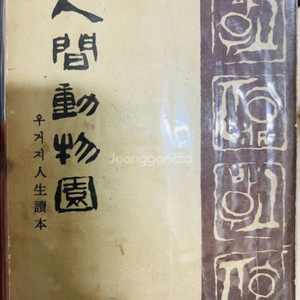 人間動物園
우거지人生讀本
Joonggonara